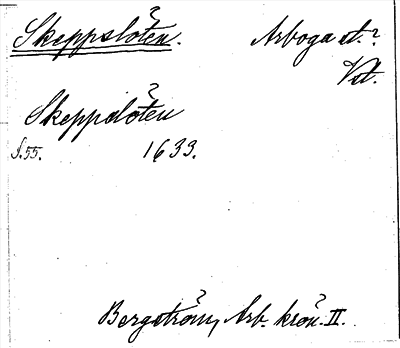 Skeppslöten. Arboga st.?
Vstl.
Skeppslöten
S. 55. 1633.
Bergström, Arb. krön. II.